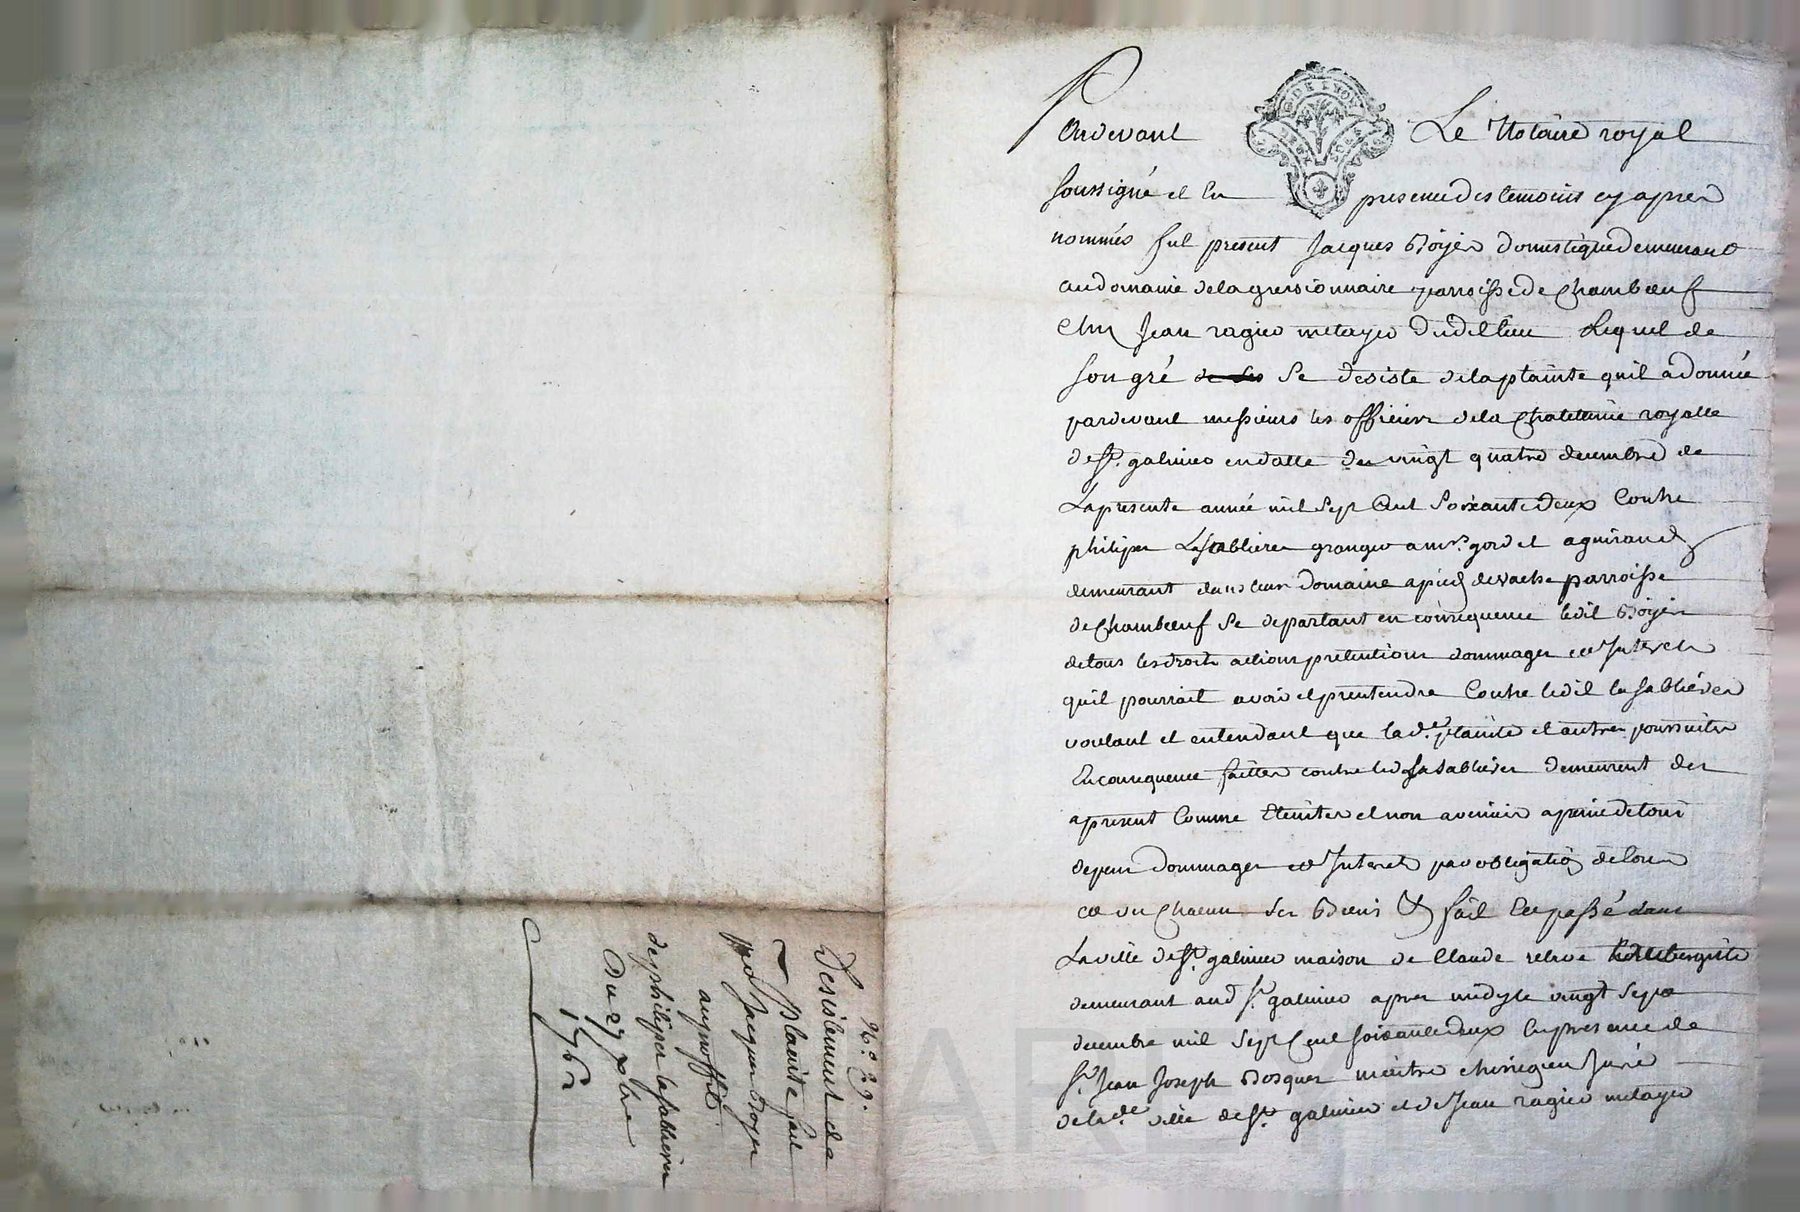 Pardevant Le Notaire royal
soussigné et En presence des temoins cy apres
nommés fut present Jacques Boyer domestique demeurant
au domaine de la paroisse de Chambœuf
chez Jean ragieu metayer dudit lieu Lequel de
son gré se desiste de la plainte quil a donnée
pardevant messieurs les officiers de la Chatellenie royalle
de St. galmier en datte du vingt quatre decembre de
La presente année mil sept Cent soixante deux Contre
philiper Lasablierer granger a mrs. gord et
demeurant dans leur domaine a pied de vache parroisse
de Chambœuf se departant en consequence ledit Boyer
de tous les droits actions pretentions dommages et Interets
quil pourrait avoir et pretendre Contre ledit la sablierer
voulant et entendant que lade. plainte et autres poursuites
En consequence faittes contre led lasablierer demeurent des
a present Comme Eteintes et non avenues a peine de tous
depens dommages et Interets par obligation de tous
et un Chacun ses Biens & fait et passé dans
La ville de St. galmier maison de Claude releve
demeurant aud St. galmier apres midy le vingt sept
decembre mil sept Cent soixante deux En presence de
Sr. Jean Joseph Bosquer maitre chirurgien Juré
de lade. ville de St. galmier et de Jean ragieu metayer
No. 29.
Desistement de la
Plainte fait
par Jacques Boyer
au proffit
de philiper lasablierer
Du 27 Xbre
1762
DE LYON